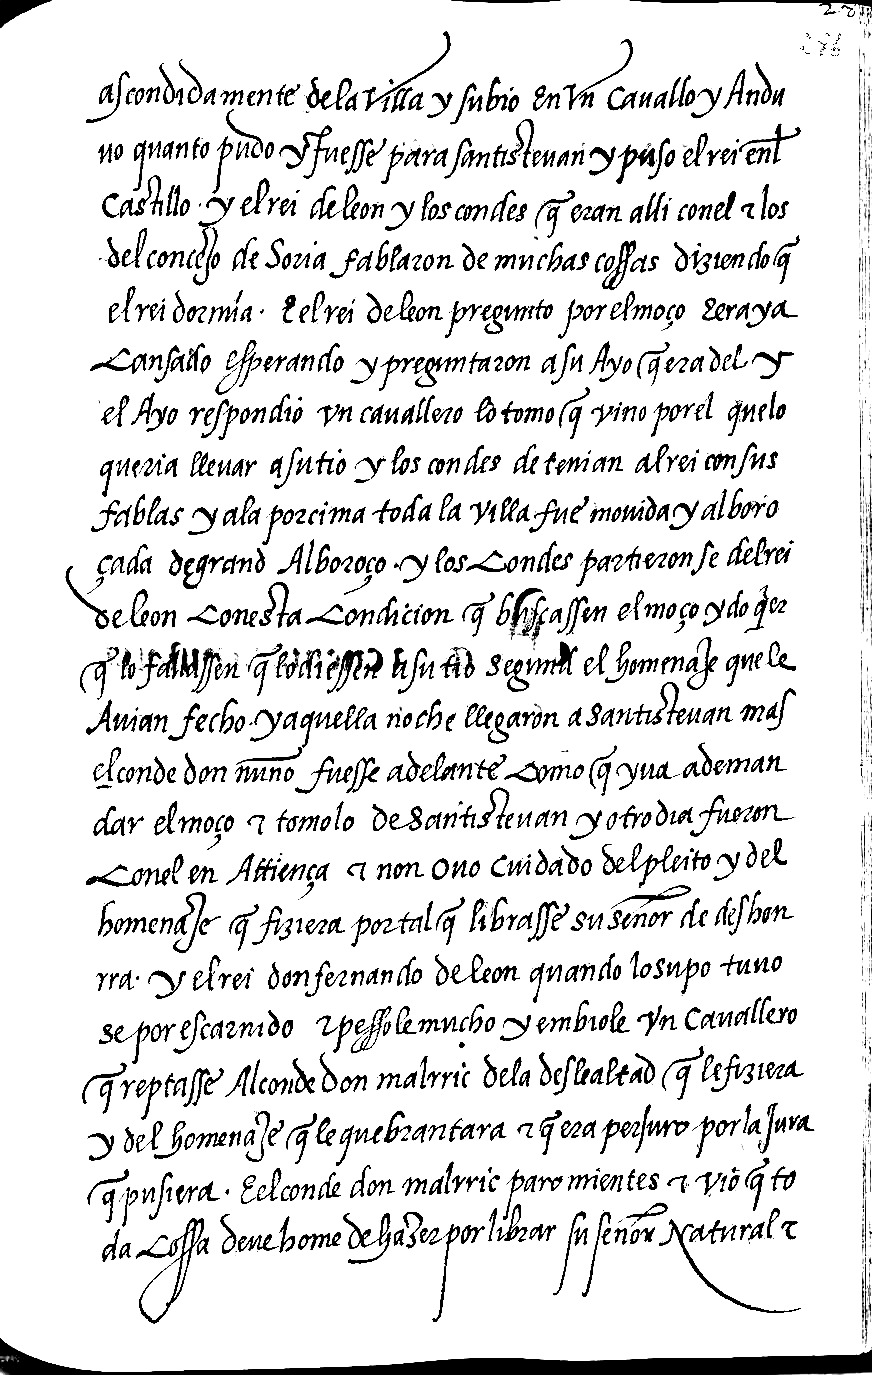 286
ascondidamente de la villa y subio En vn Cavallo y Andu
uo quanto pudo y fuesse para santisteuan y puso el rei enl
Castillo · y el rei de leon y los condes q̃ eran alli conel ⁊ los
del concejo de Soria fablaron de muchas cossas diziendo q̃
el rei dormia · E el rei de leon pregunto por el moço E era ya
Cansado esperando y preguntaron a su Ayo q̃ era del y
el Ayo respondio vn cauallero lo tomo q̃ vino por el que lo
queria lleuar a su tio y los condes detenian al rei con sus
fablas y a la por cima toda la villa fue mouida y alboro
çada de grand Alboroço · y los Condes partieron se del rei
de leon Con esta Condicion q̃ buscassen el moço y do q̃er
q̃ lo fallassen q̃ lo diessen a su tio segund el homenaje que le
Auian fecho · y aquella noche llegaron a santisteuan mas
el conde don nuño fuesse adelante Como q̃ yua a deman
dar el moço ⁊ tomolo de Santisteuan y otro dia fueron
Con el en Attiença ⁊ non ouo Cuidado del pleito y del
homenaje q̃ fiziera por tal q̃ librasse su señor de deshon
rra · y el rei don fernando de leon quando lo supo tuuo
se por escarnido ⁊ pessole mucho y embiole vn Cauallero
q̃ reptasse Al conde don malrric de la deslealtad q̃ le fiziera
y del homenaje q̃ le quebrantara ⁊ q̃ era perjuro por la Jura
q̃ pusiera · E el conde don malrric paro mientes ⁊ vio q̃ to
da Cossa deue home de hazer por librar su señor Natural ⁊